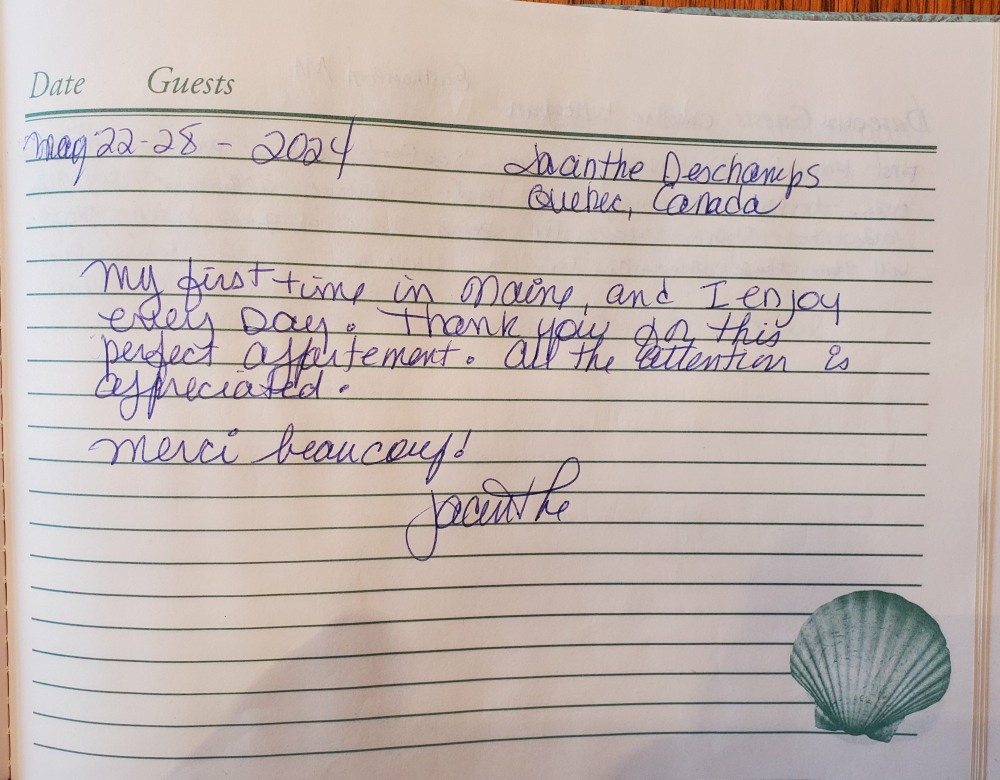 Date Guests
May 22-28 - 2024
Jacinthe Deschamps
Quebec, Canada
My first time in Maine, and I enjoy
every Day. Thank you for this
perfect appartement. All the attention is
appreciated.
Merci beaucoup!
Jacinthe